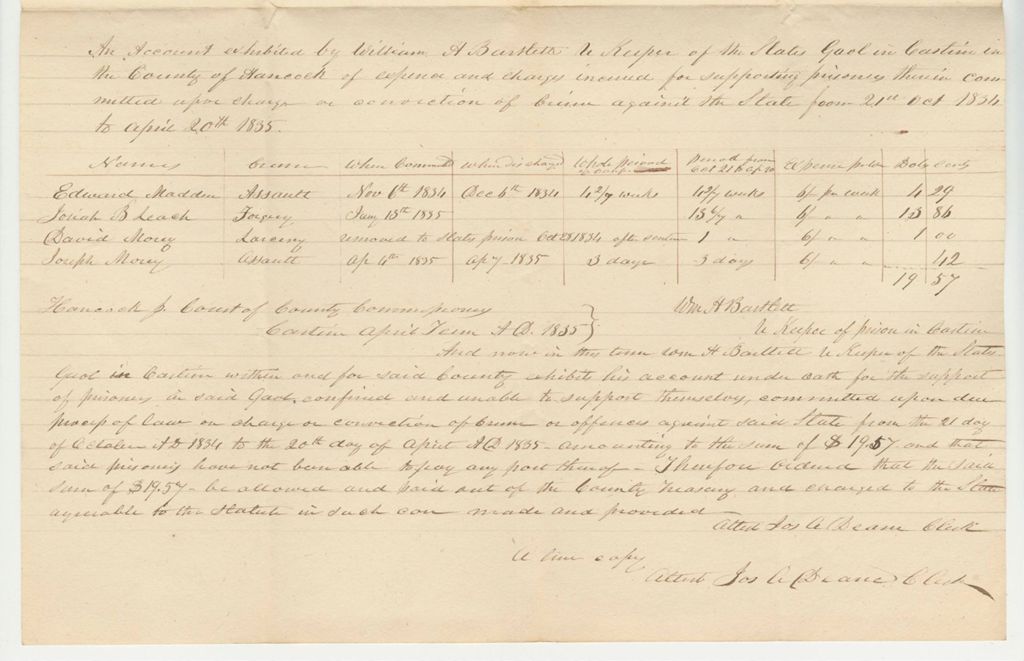 An Account exhibited by William H Bartlett U Keeper of the States Gaol in Castine in
the County of Hancock of expence and charges incured for supporting prisoners therein com
mitted upon charge or conviction of Crime against the State from 21st Oct 1834
to April 20th 1835.
Names Crime When Committed When discharged Whole period Period from Oct 21 to Ap 20 Expense pr Dols Cents
Edward Madden Assault Nov 6th 1834 Dec 6th 1834 4 2/7 weeks 4 2/7 weeks 6/ per week 4 29
Josiah B Leach Forgery Jany 13th 1835 13 6/7 " 6/ " " 13 86
David Morey Larceny removed to States prison Oct 28 1834 after sentence 1 " 6/ " " 1 00
Joseph Morey Assault Ap 4th 1835 Ap 7 1835 3 days 3 days 6/ " " 42
19 57
Hancock ss. Court of County Commissioners
Castine April Term A.D. 1835
Wm H Bartlett
U Keeper of prison in Castine
And now in this term Wm H Bartlett U Keeper of the States
Gaol in Castine within and for said County exhibits his account under oath for the support
of prisoners in said Gaol confined and unable to support themselves, committed upon due
process of law on charge or conviction of crime or offences against said State from the 21 day
of October AD 1834 to the 20th day of April AD 1835 - amounting to the sum of $19.57 and that
said prisoners have not been able to pay any part thereof - Therefore ordered that the said
sum of $19.57 - be allowed and paid out of the County Treasury and charged to the State
agreeable to the Statute in such case made and provided -
Attest Jos A Deane Clerk
A true copy
Attest Jos A Deane Clerk